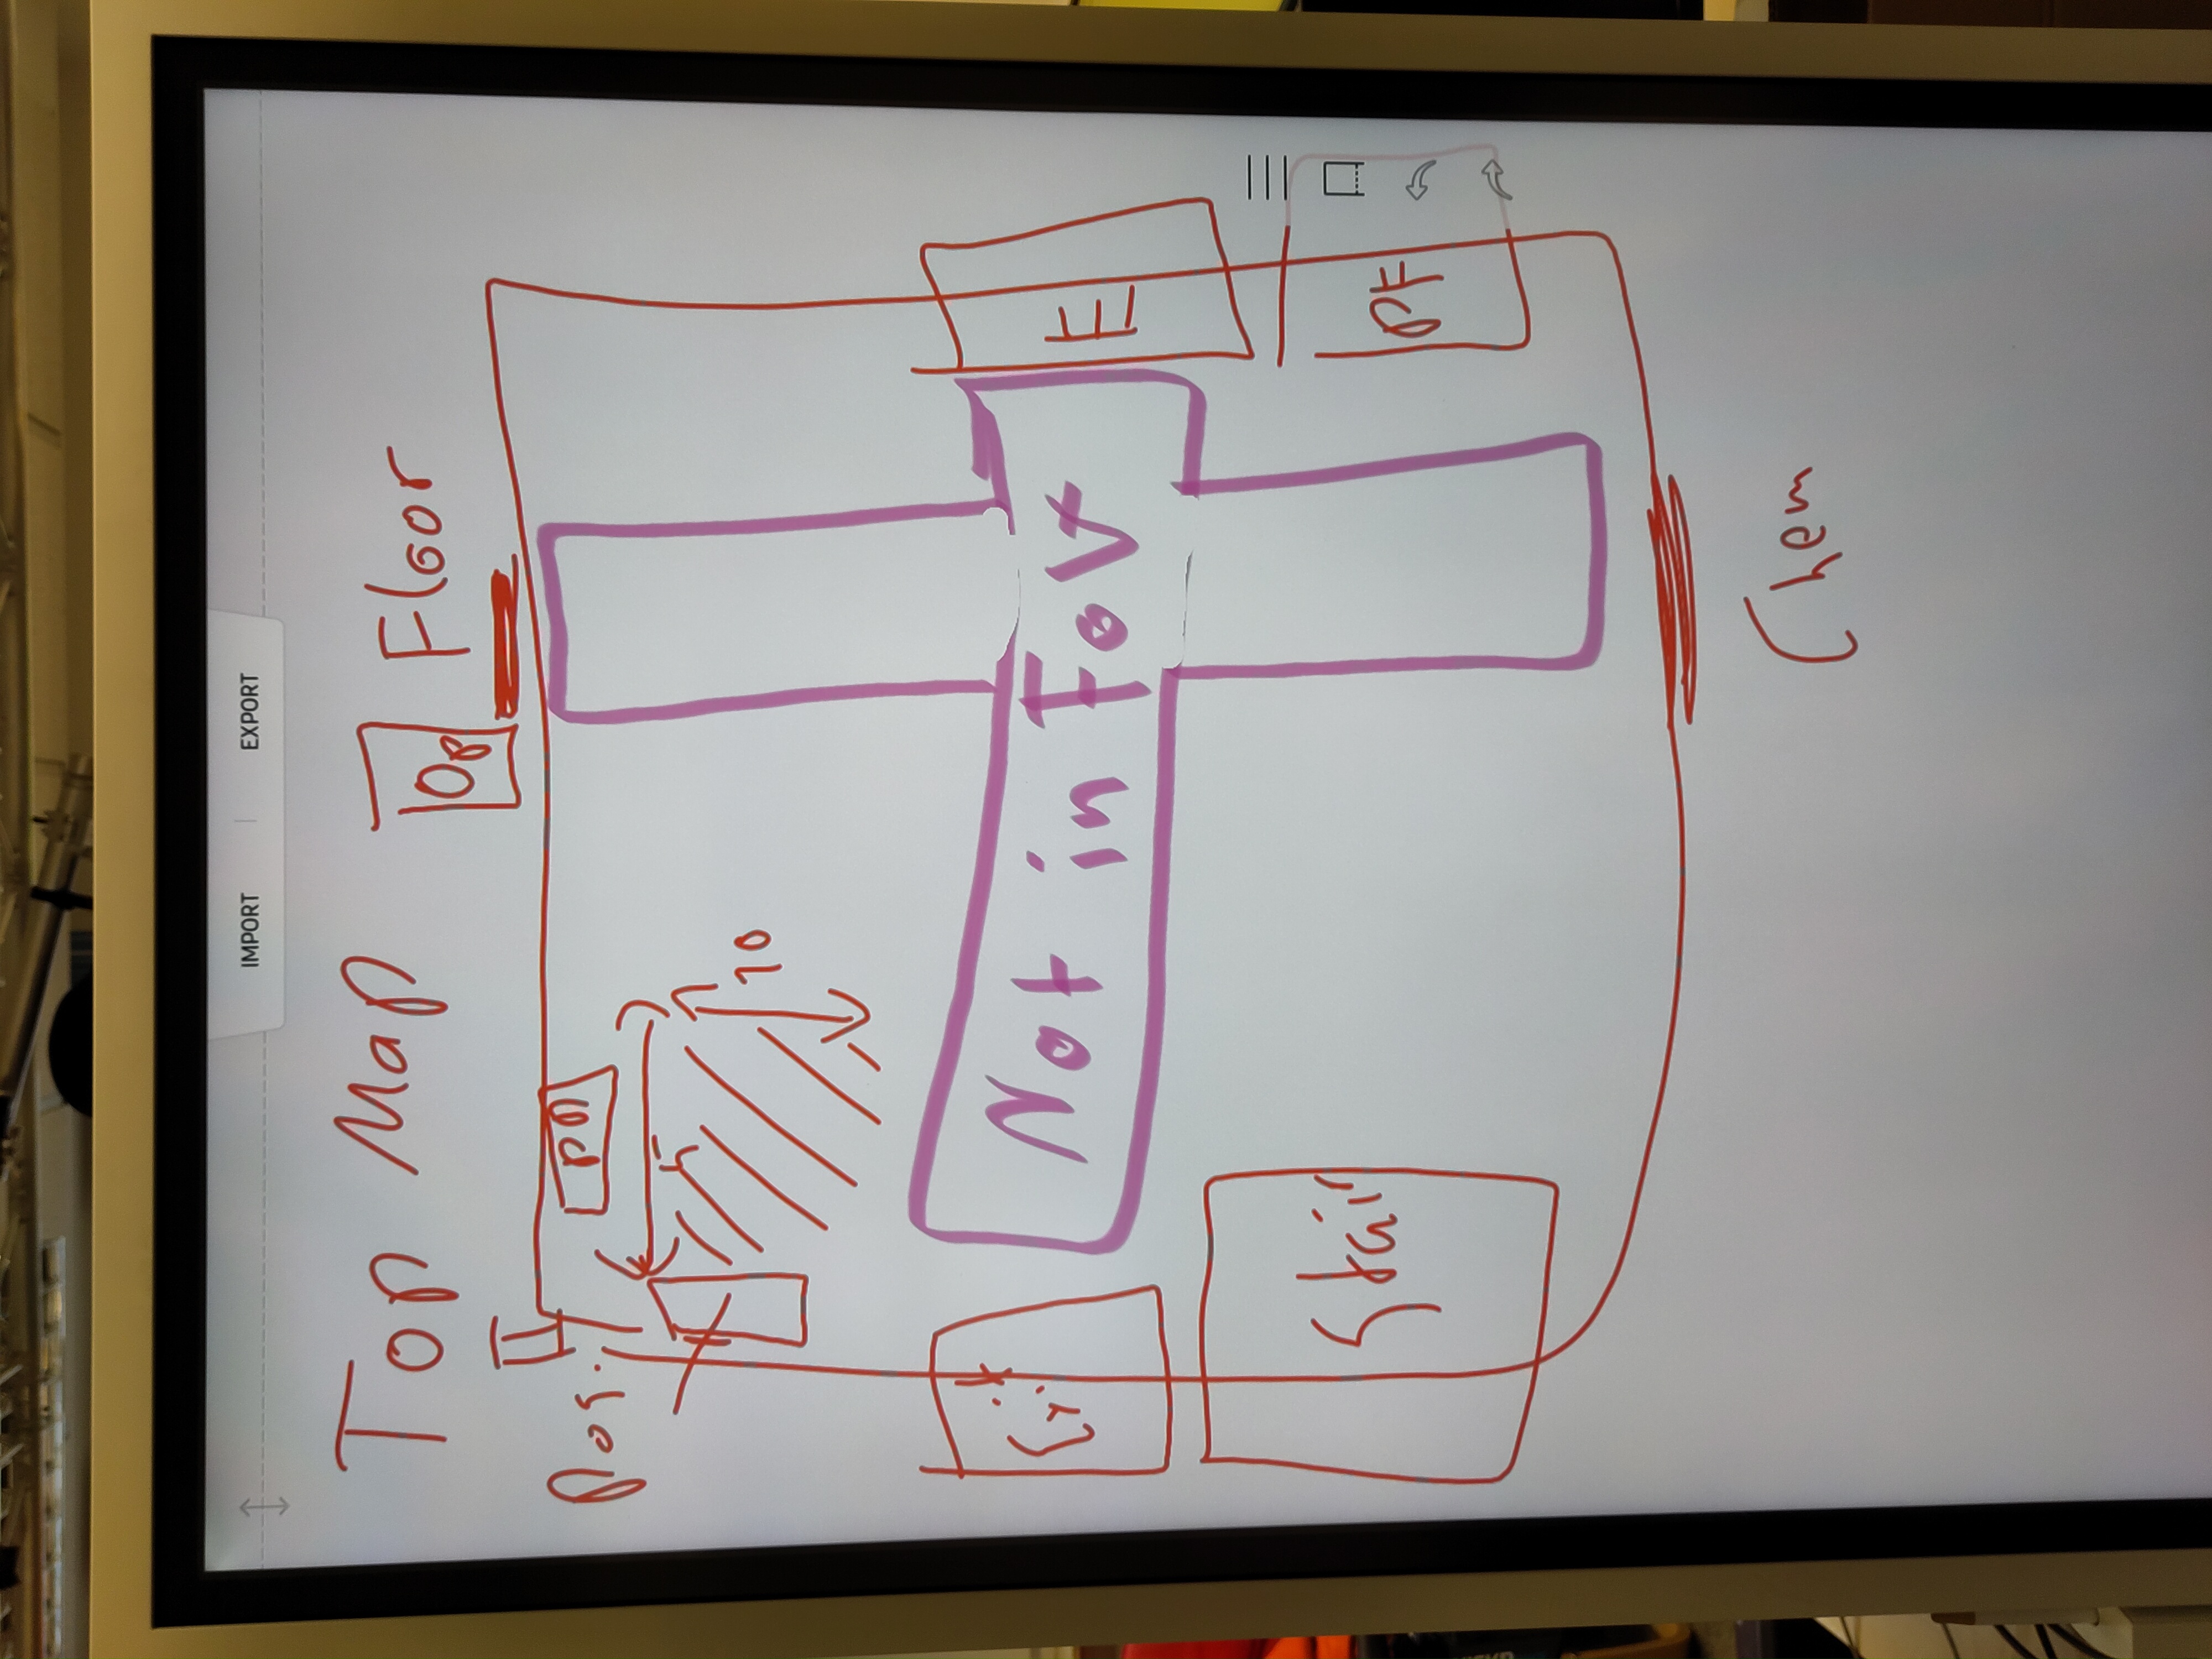 IMPORT EXPORT
Top Map
Op Floor
Pos.
PM
5
10
Exit
Not in FoV
E
Stair
PF
Chem